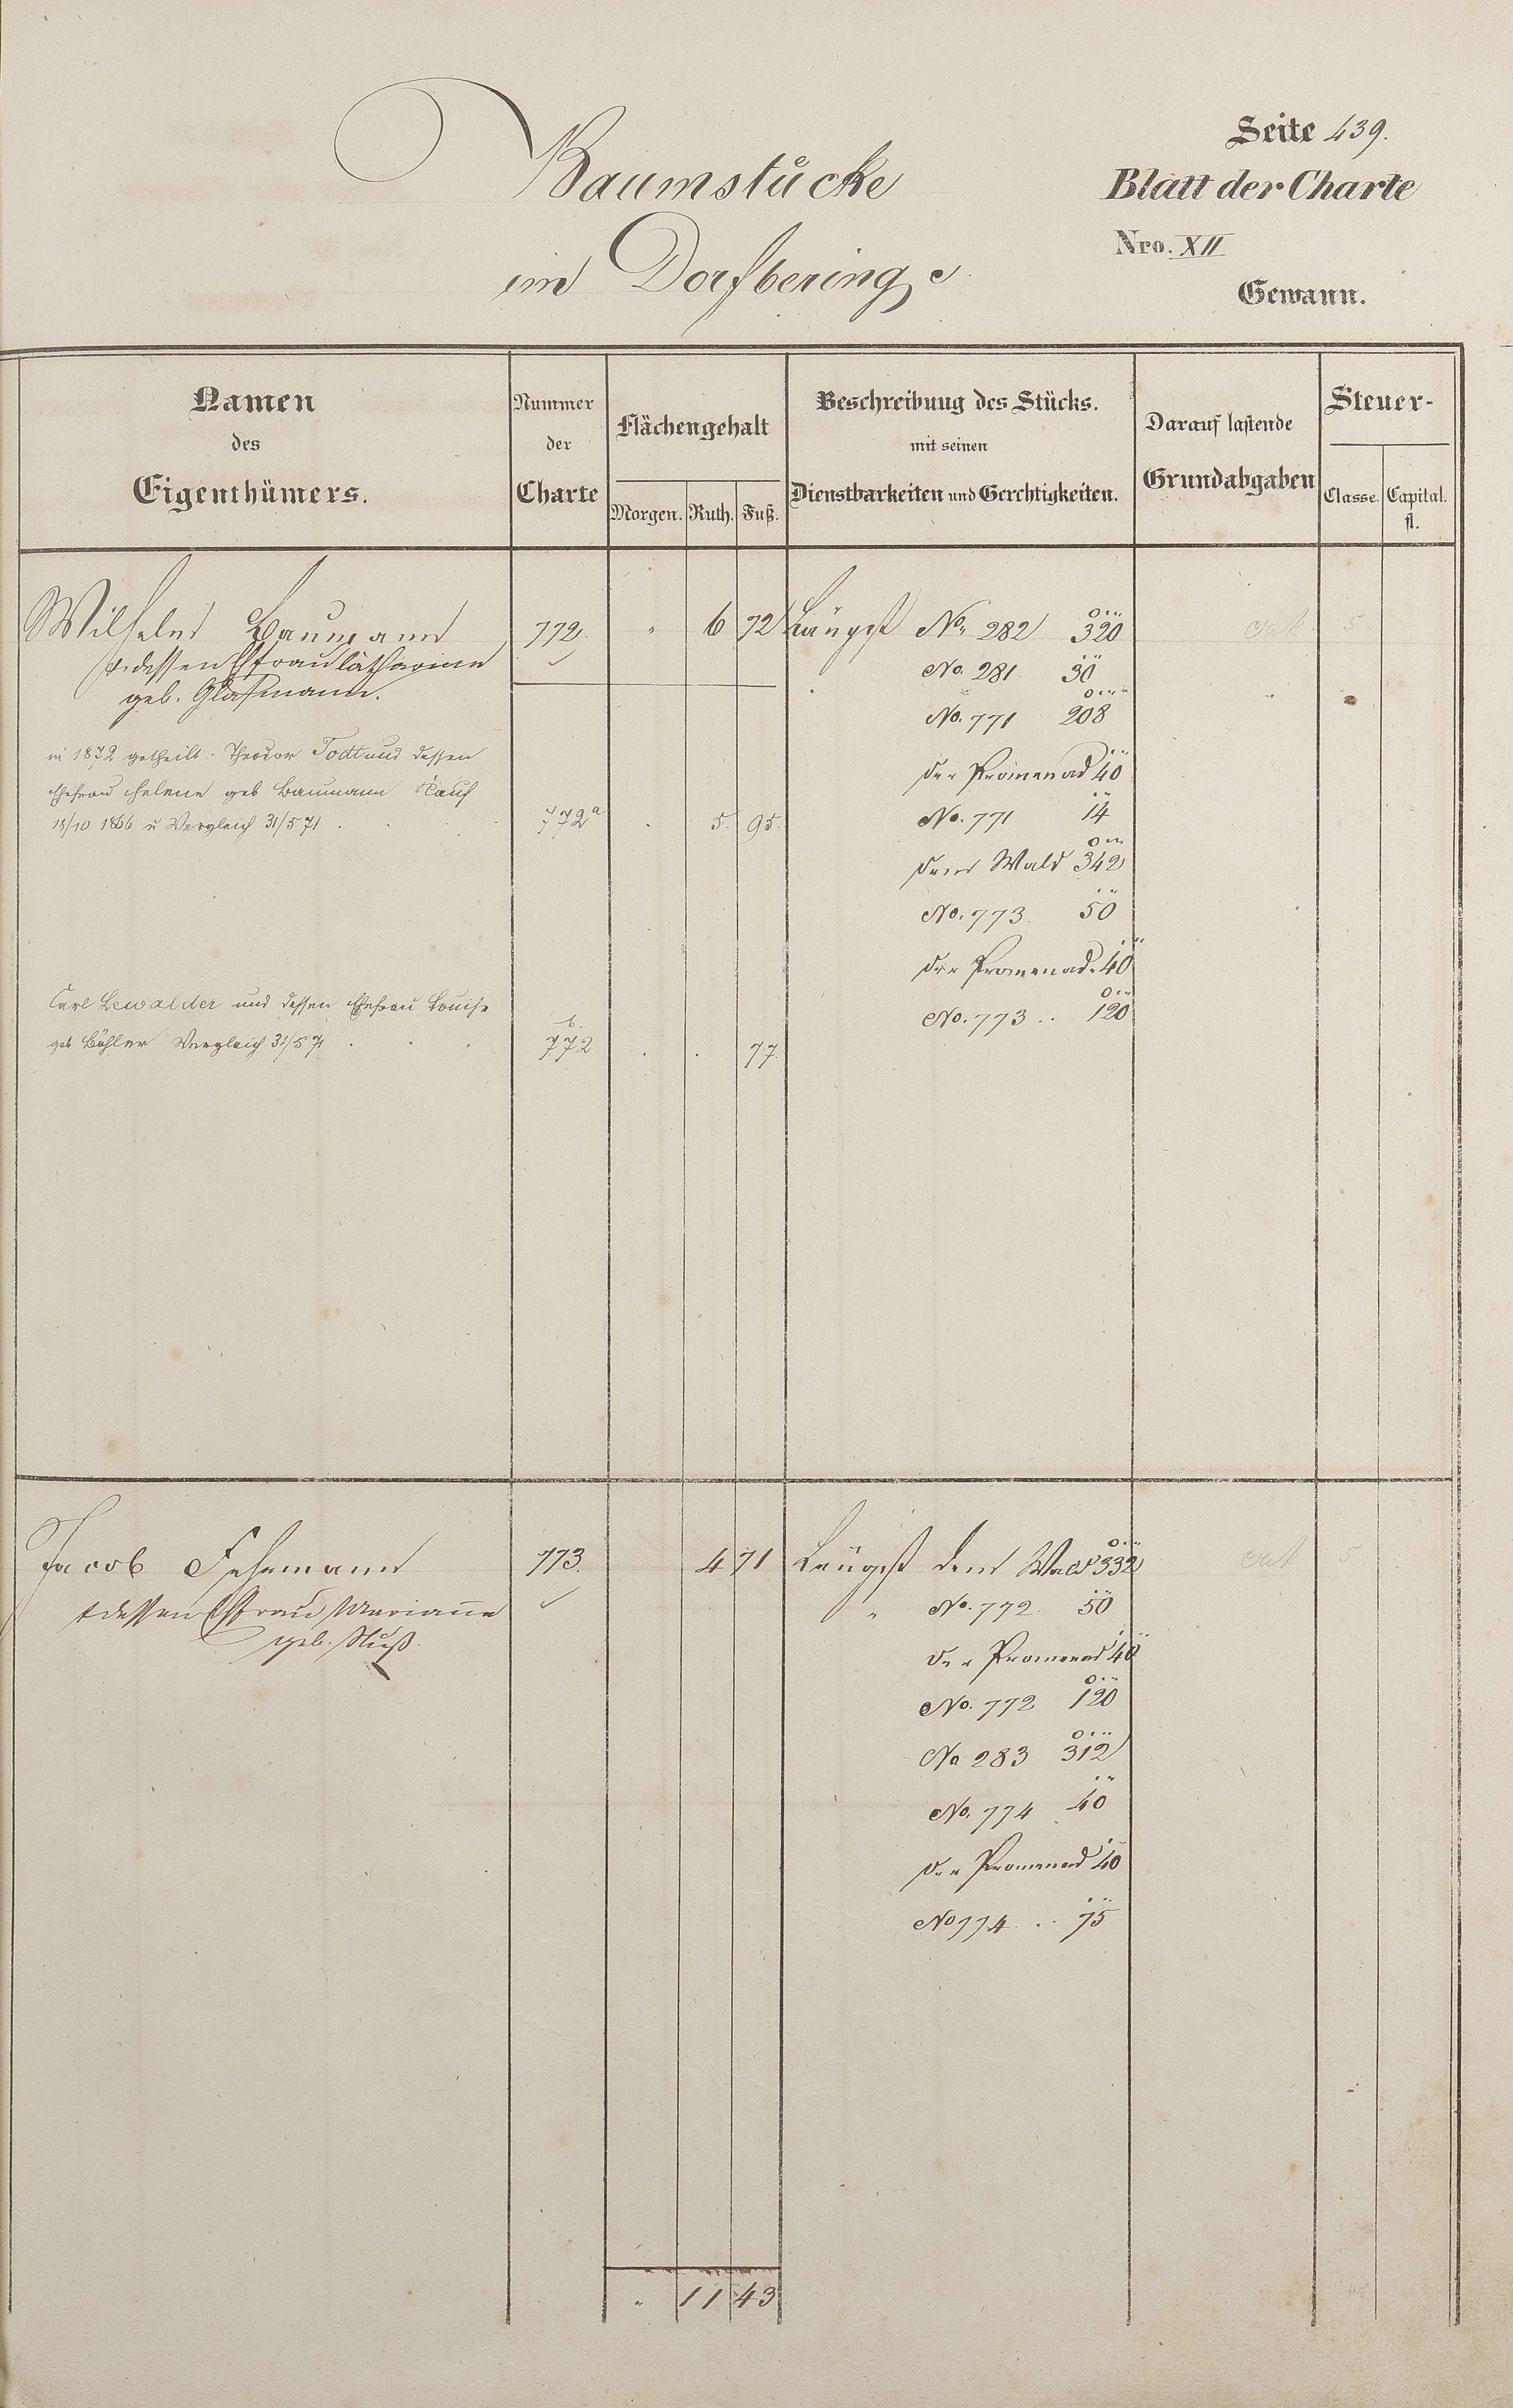 Seite 439.
Baumstücke
Blatt der Charte
Nro. XII
im Dorfberinge
Gewann.
Namen
des
Eigenthümers.
Nummer
der
Charte
Flächengehalt
Morgen. Ruth. Fuß.
Beschreibung des Stücks.
mit seinen
Dienstbarkeiten und Gerechtigkeiten.
Darauf lastende
Grundabgaben
Steuer-
Classe. Capital.
fl.
Wilhelm Baumann 772. " 6 72 Längst No. 282 320 5
& dessen Ehfrau Catharina No. 281 30
geb. Glasmann. No. 771 208
in 1872 getheilt. Theodor Todt und dessen der Promenad 40
Ehefrau Helene geb Baumann Kauf
18/10 1866 u Vergleich 31/5 71 . 772a . 5. 95. No. 771 14
dem Wald 342
No. 773 50
der Promenad. 40
Carl Lewalder und dessen Ehefrau Louise No. 773 .. 120
geb Böhler Vergleich 31/5 71 . . . 772b. . . 77.
Jacob Fehemann 773. 4 71 Längst dem Wald 332 5
& dessen Ehfrau Marianne " No. 772. 50
geb. Nuß. der Promenad 40
No. 772 120
No 283 312
No. 774 40
der Promenad 40
No 774 .. 75
" 11 43